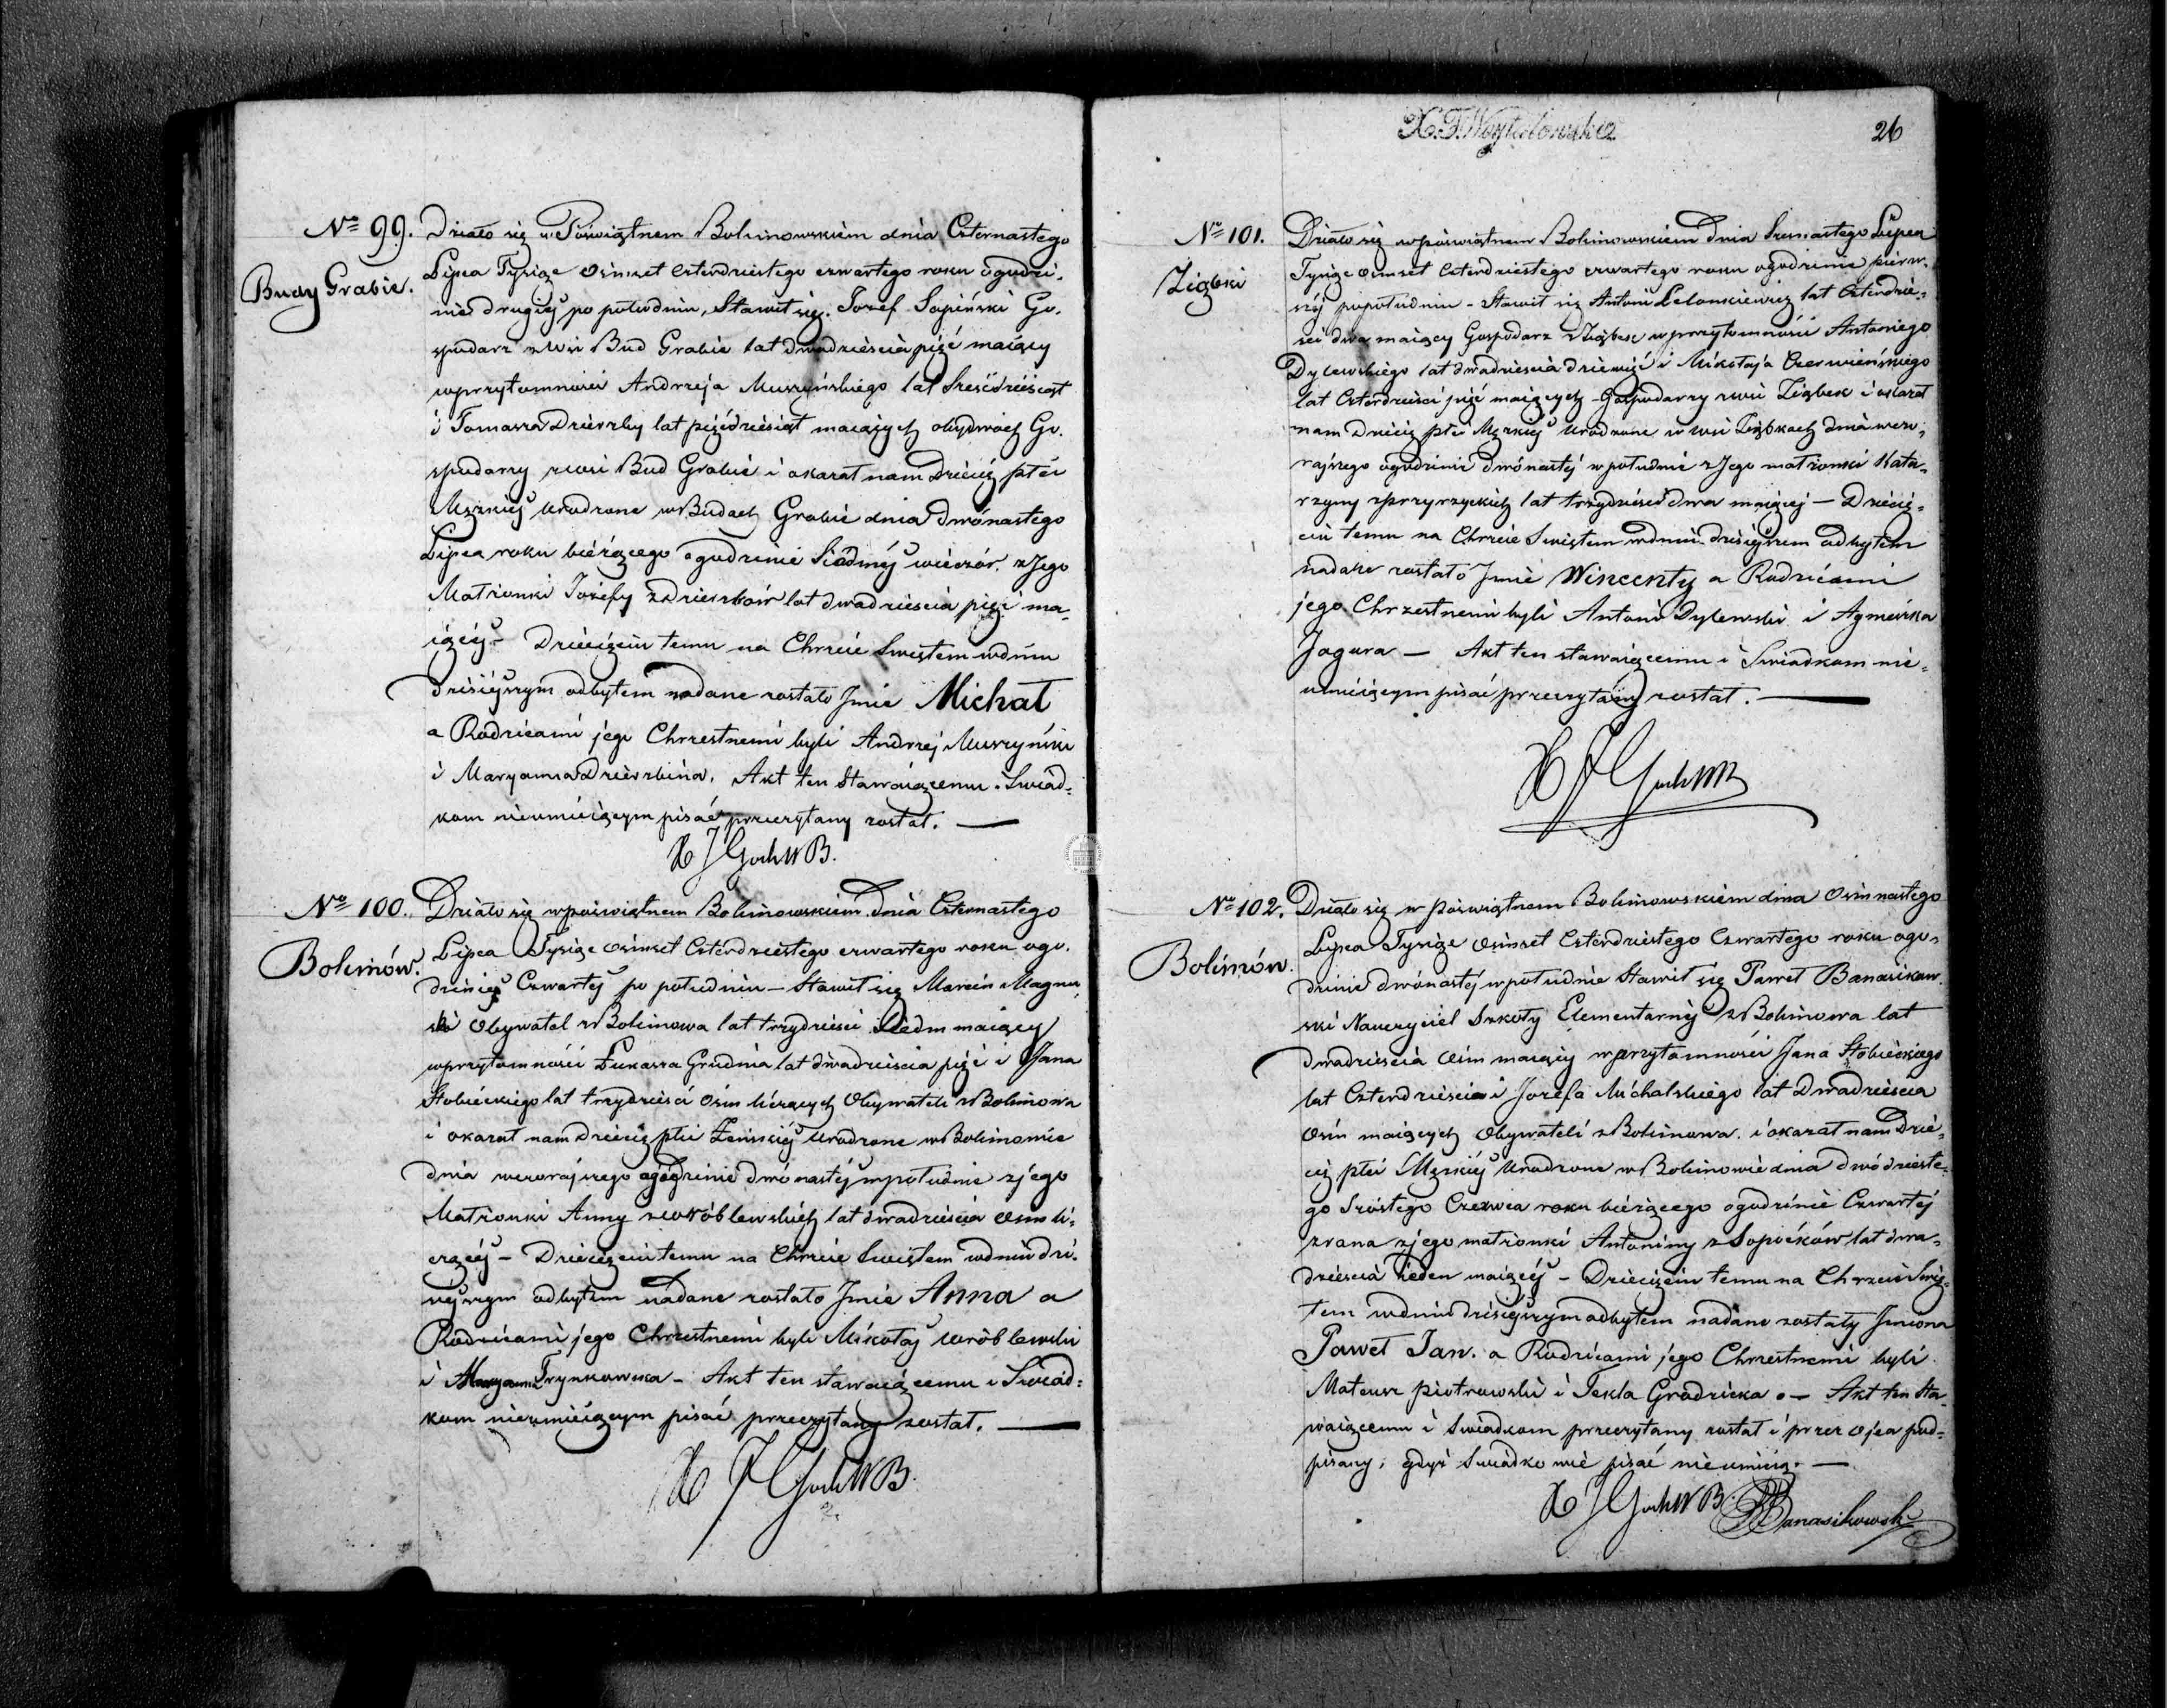 Nro 99.
Budy Grabie.
Działo się w Poświątnem Bolimowskiem dnia Czternastego
Lipca Tysiąc osimset czterdziestego czwartego roku o godzi-
nie drugiéj po południu, Stawił się Jozef Sapiński Go-
spodarz z Wsi Bud Grabie lat dwadzieścia pięć maiący
w przytomności Andrzeja Muszyńskiego lat Sześćdziesiąt
i Tomasza Dzierzby lat pięćdziesiąt maiących obydwóch Go-
spodarzy z wsi Bud Grabie i okazał nam Dziecię płci
Męzkiéj urodzone w Budach Grabie dnia dwónastego
Lipca roku bieżącego o godzinie Siódméj wieczór z Jego
Małżonki Józefy z Dzierzbów lat dwadzieścia pięć ma-
iącéj – Dziecięciu temu na Chrzcie Świętem w dniu
dzisiéjszym odbytem nadane zostało Jmie Michał
a Rodzicami jego Chrzestnemi byli Andrzej Muszyński
i Maryanna Dzierzbina. Akt ten Stawaiącemu i Świad-
kom nieumieiącym pisać przeczytany został. —
X J Goch W B.
Nro 100.
Bolimów.
Działo się w poświątnem Bolimowskiem dnia Czternastego
Lipca Tysiąc osimset Czterdziestego czwartego roku ogo-
dzinie Czwartéj po południu – Stawił się Marcin Magnu
ski Obywatel z Bolimowa lat trzydzieści Siedm maiący
w przytomności Łukasza Grudnia lat dwadzieścia pięć i Jana
Stobieckiego lat trzydzieści Osim liczących Obywateli z Bolimowa
i okazał nam Dziecię płci Żeńskiéj urodzone w Bolimowie
dnia wczorajszego o godzinie dwónastéj w południe z jego
Małżonki Anny z Wróblewskich lat dwadzieścia Osim li-
czącéj – Dziecięciu temu na Chrzcie Świętem w dniu dzi-
siéjszym odbytem nadane zostało Jmie Anna a
Rodzicami jego Chrzestnemi byli Mikołaj Wróblewski
i Maryanna Trynkowska – Akt ten stawaiącemu i Świad-
kom nieumieiącym pisać przeczytany został. —
X J Goch W B.
X. J. Woytulewska
26
Nro 101.
Ziąbki
Działo się w poświątnem Bolimowskiem Dnia Szesnastego Lipca
Tysiąc osimset Czterdziestego czwartego roku o godzinie pierw-
széj po południu – Stawił się Antoni Celonkiewicz lat Czterdzie-
ści dwa maiący Gospodarz z Ziąbek w przytomności Antoniego
Dylewskiego lat dwadzieścia dziewięć i Mikołaja Czerwińskiego
lat Czterdzieści pięć maiących Gospodarzy z wsi Ziąbek i okazał
nam Dziecię płci Męzkiéj urodzone w wsi Ziąbkach dnia wczo-
rajszego o godzinie dwónastéj w południe z Jego małżonki Kata-
rzyny z Przyrzyckich lat trzydzieści dwa maiącéj – Dziecię-
ciu temu na Chrzcie Świętem w dniu dzisiéjszem odbytem
nadane zostało Jmie Wincenty a Rodzicami
jego Chrzestnemi byli Antoni Dylewski i Agnieszka
Jagura — Akt ten stawaiącemu i Świadkom nie-
umieiącym pisać przeczytany został. —
X J Goch W B
Nro 102.
Bolimów.
Działo się w Poświątnem Bolimowskiem dnia Osimnastego
Lipca Tysiąc Osimset Czterdziestego Czwartego roku ogo-
dzinie dwónastéj w południe Stawił się Paweł Banasikow-
ski Nauczyciel Szkoły Elementarnéj z Bolimowa lat
dwadzieścia osim maiący w przytomności Jana Stobieckiego
lat Czterdzieścia i Jozefa Michalskiego lat Dwadzieścia
Osim maiących Obywateli z Bolimowa. i okazał nam Dzie-
cię płci Męzkiéj urodzone w Bolimowie dnia dwódzieste-
go Szóstego Czerwca roku bieżącego o godzinie Czwartéj
z rana z jego małżonki Antoniny z Sopiéków lat dwa-
dzieścia ieden maiącéj – Dziecięciu temu na Chrzcie Świę-
tem w dniu dzisiéjszym odbytem nadane zostały Jmiona
Paweł Jan. a Rodzicami jego Chrzestnemi byli
Mateusz Piotrowski i Tekla Grodzicka. – Akt ten Sta-
waiącemu i Świadkom przeczytany został i przez Ojca pod-
pisany, gdyż Świadkowie pisać nieumieią. —
X J Goch W B. PBanasikowski